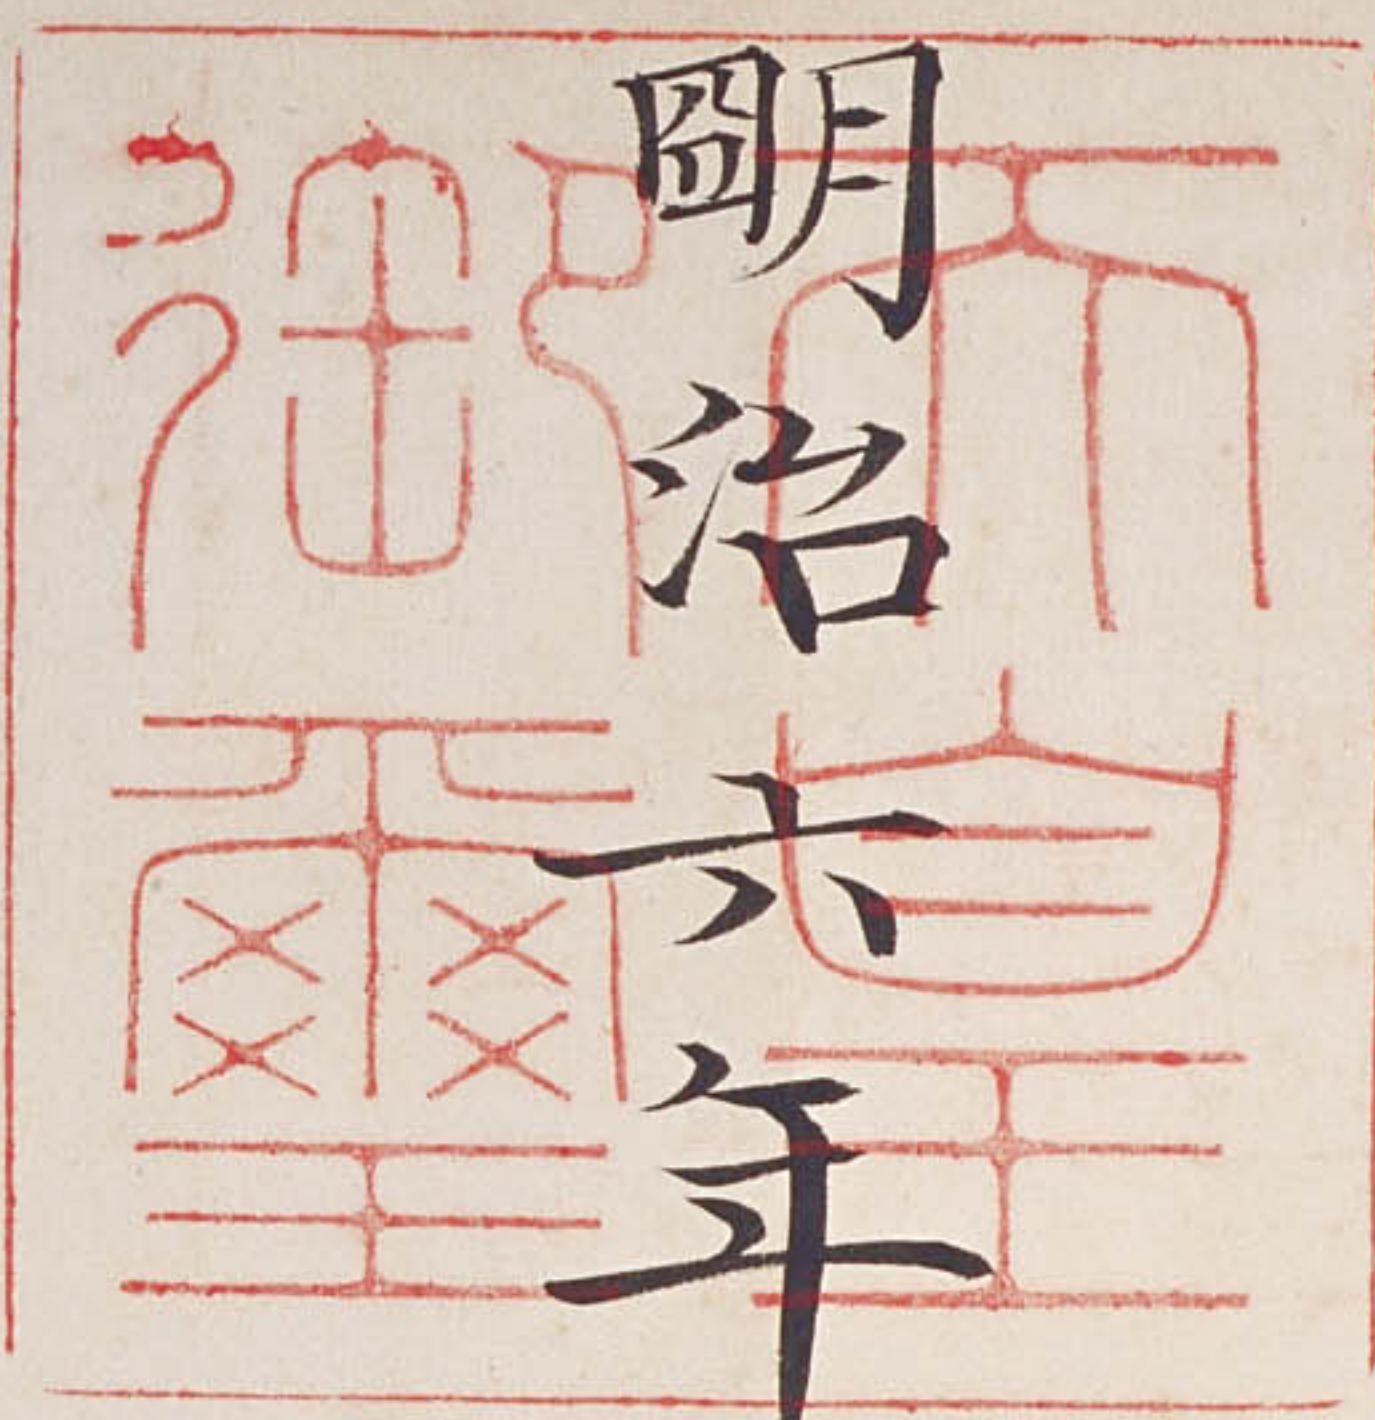 朙治六年
天皇
御璽